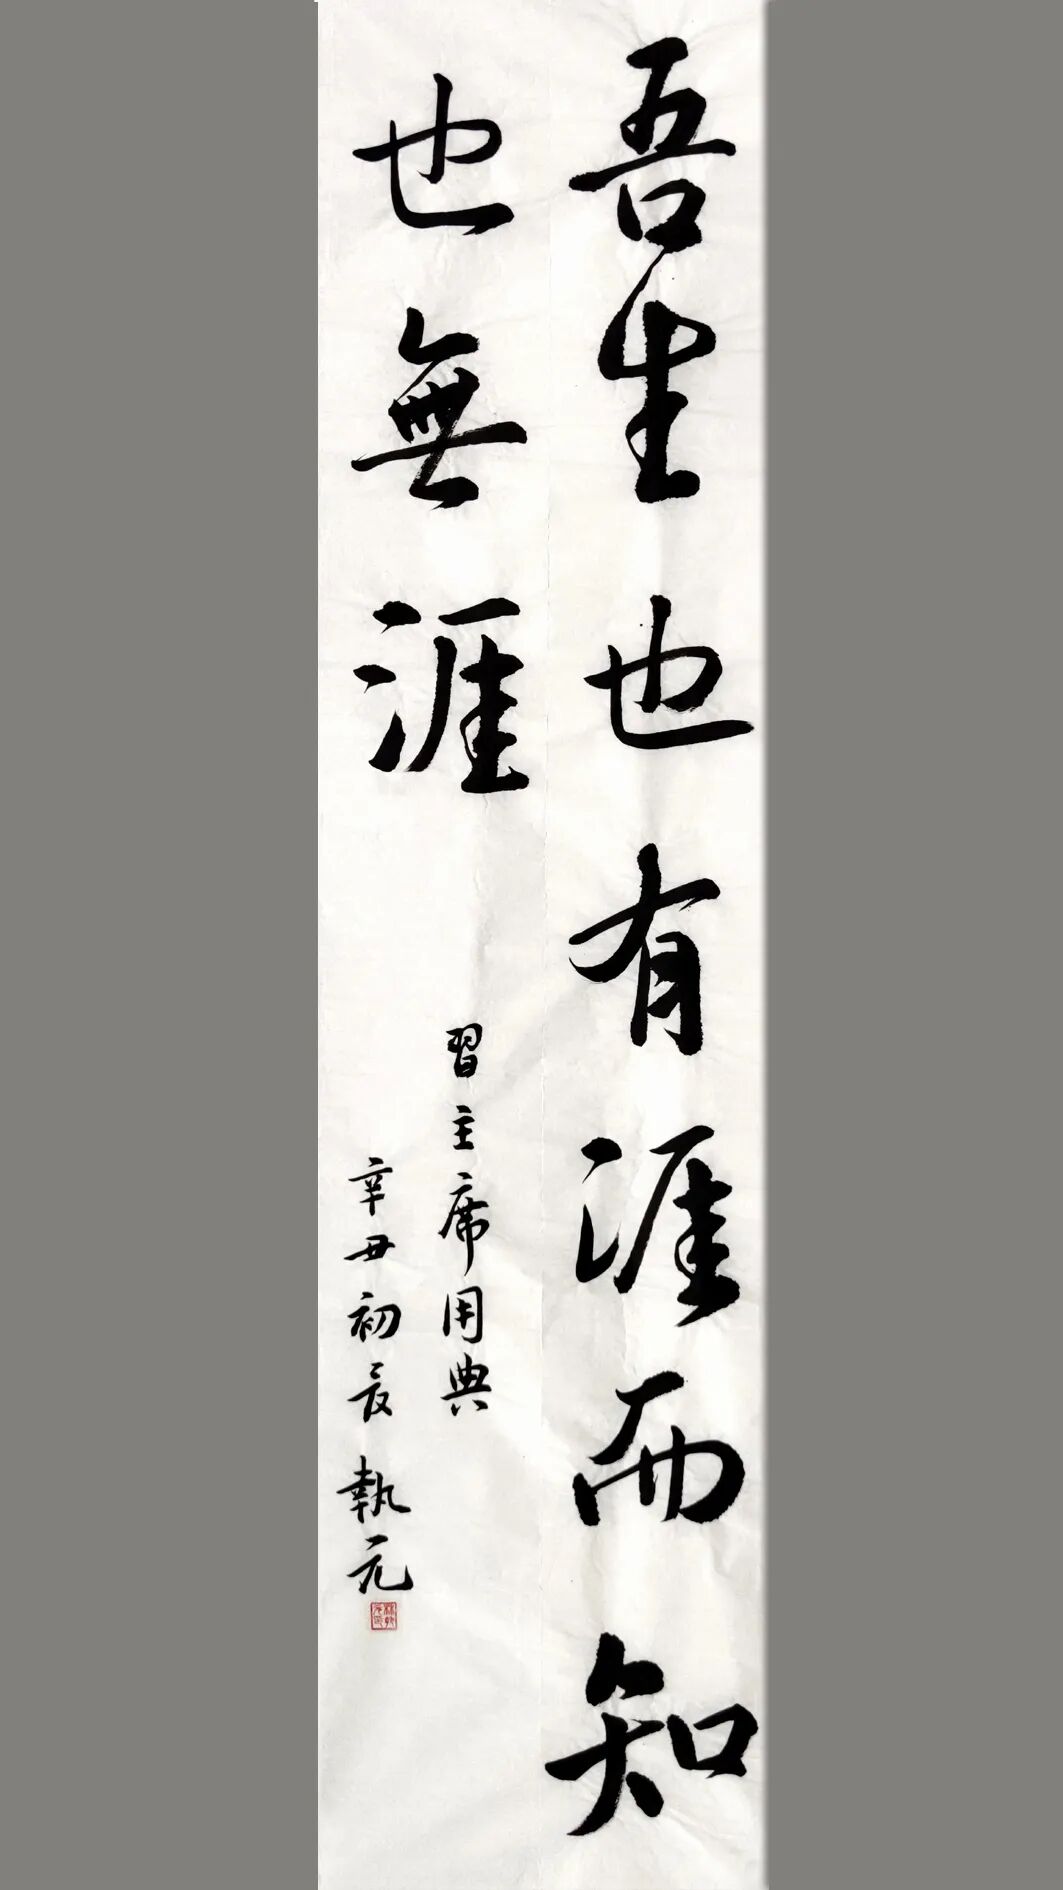 吾生也有涯而知
也無涯
習主席用典
辛丑初夏執元